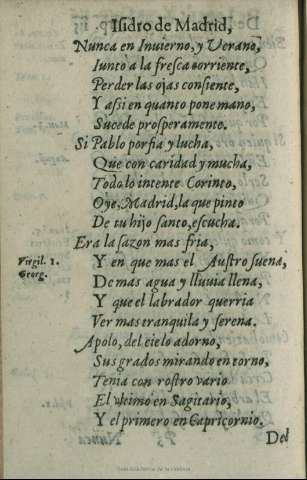 Isidro de Madrid,
Nunca en Inuierno, y Verano,
Iunto a la fresca corriente,
Perder las ojas consiente,
Y assi en quanto pone mano,
Sucede prosperamente.
Si Pablo porfia y lucha,
Que con caridad y mucha,
Todo lo intente Corinto,
Oye, Madrid, la que pinto
De tu hijo santo, escucha.
Era la sazon mas fria,
Virgil. 1.
Georg.
Y en que mas el Austro suena,
De mas agua y lluuia llena,
Y que el labrador querria
Ver mas tranquila y serena.
Apolo, del cielo adorno,
Sus grados mirando en torno,
Tenia con rostro vario
El vltimo en Sagitario,
Y el primero en Capricornio.
Del